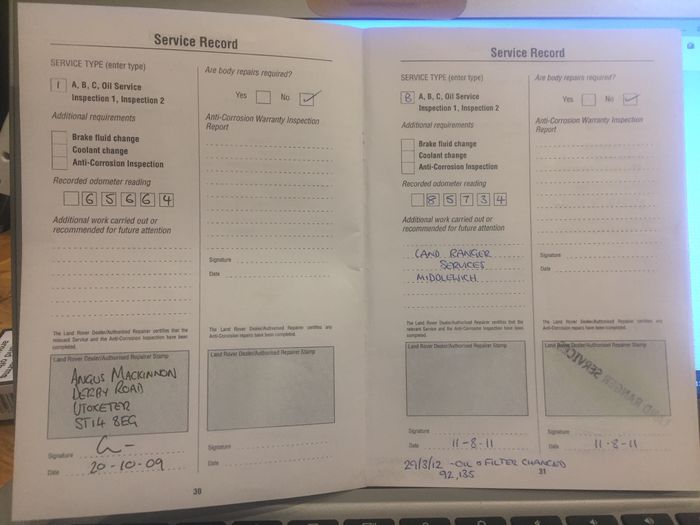 Service Record
SERVICE TYPE (enter type)
1 A, B, C, Oil Service
Inspection 1, Inspection 2
Additional requirements
Brake fluid change
Coolant change
Anti-Corrosion Inspection
Recorded odometer reading
6 5 6 6 4
Additional work carried out or
recommended for future attention
The Land Rover Dealer/Authorised Repairer certifies that the
relevant Service and the Anti-Corrosion Inspection have been
completed.
Land Rover Dealer/Authorised Repairer Stamp
ANGUS MACKINNON
DERBY ROAD
UTOXETER
ST14 8EG
Signature
Date 20-10-09
Are body repairs required?
Yes No
Anti-Corrosion Warranty Inspection
Report
Signature
Date
The Land Rover Dealer/Authorised Repairer certifies any
Anti-Corrosion repairs have been completed.
Land Rover Dealer/Authorised Repairer Stamp
Signature
Date
30
Service Record
SERVICE TYPE (enter type)
B A, B, C, Oil Service
Inspection 1, Inspection 2
Additional requirements
Brake fluid change
Coolant change
Anti-Corrosion Inspection
Recorded odometer reading
8 5 7 3 4
Additional work carried out or
recommended for future attention
LAND RANGER
SERVICES
MIDDLEWICH
The Land Rover Dealer/Authorised Repairer certifies that the
relevant Service and the Anti-Corrosion Inspection have been
completed.
Land Rover Dealer/Authorised Repairer Stamp
Signature
Date 11-8-11
29/3/12 - OIL & FILTER CHANGED
92,135
Are body repairs required?
Yes No
Anti-Corrosion Warranty Inspection
Report
Signature
Date
The Land Rover Dealer/Authorised Repairer certifies any
Anti-Corrosion repairs have been completed.
Land Rover Dealer/Authorised Repairer Stamp
LAND RANGER SERVICE
Signature
Date 11-8-11
31